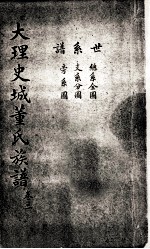 世系譜
總系全圖
支系分圖
寺系圖
大理史城董氏族譜